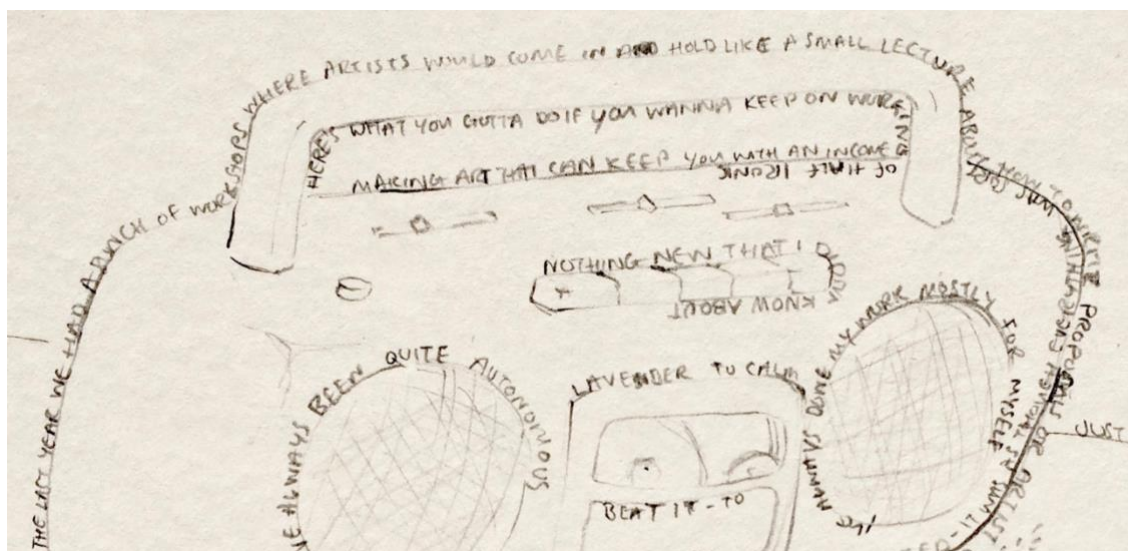 THE LAST YEAR WE HAD A BUNCH OF WORKSHOPS WHERE ARTISTS WOULD COME IN AND HOLD LIKE A SMALL LECTURE ABOUT HOW TO WRITE PROPOSALS OR ARTIST
HERE'S WHAT YOU GOTTA DO IF YOU WANNA KEEP ON WORKING
MAKING ART THAT CAN KEEP YOU WITH AN INCOME
OF HALF IRONIC
WAS SORT
EVERYTHING
NOTHING NEW THAT I DIDN'T
KNOW ABOUT
VE ALWAYS BEEN QUITE AUTONOMOUS
LAVENDER TO CALM
I'VE ALWAYS DONE MY WORK MOSTLY FOR MYSELF
JUST
BEAT IT-TO